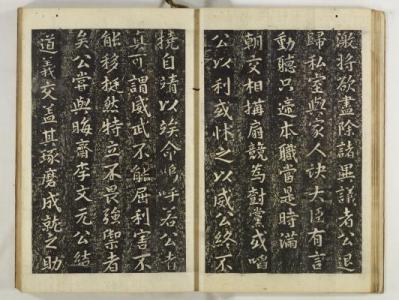 澂將欲盡除諸異議者公退
歸私室與家人訣大臣有言
動聽只遞本職當是時滿
朝交相搆扇競爲對壘或啗
公以利或怵之以威公終不
撓自靖以竢命嗚呼若公者
眞可謂威武不能屈利害不
能移挺然特立不畏強禦者
矣公嘗與晦齋李文元公結
道義交盖其琢磨成就之助